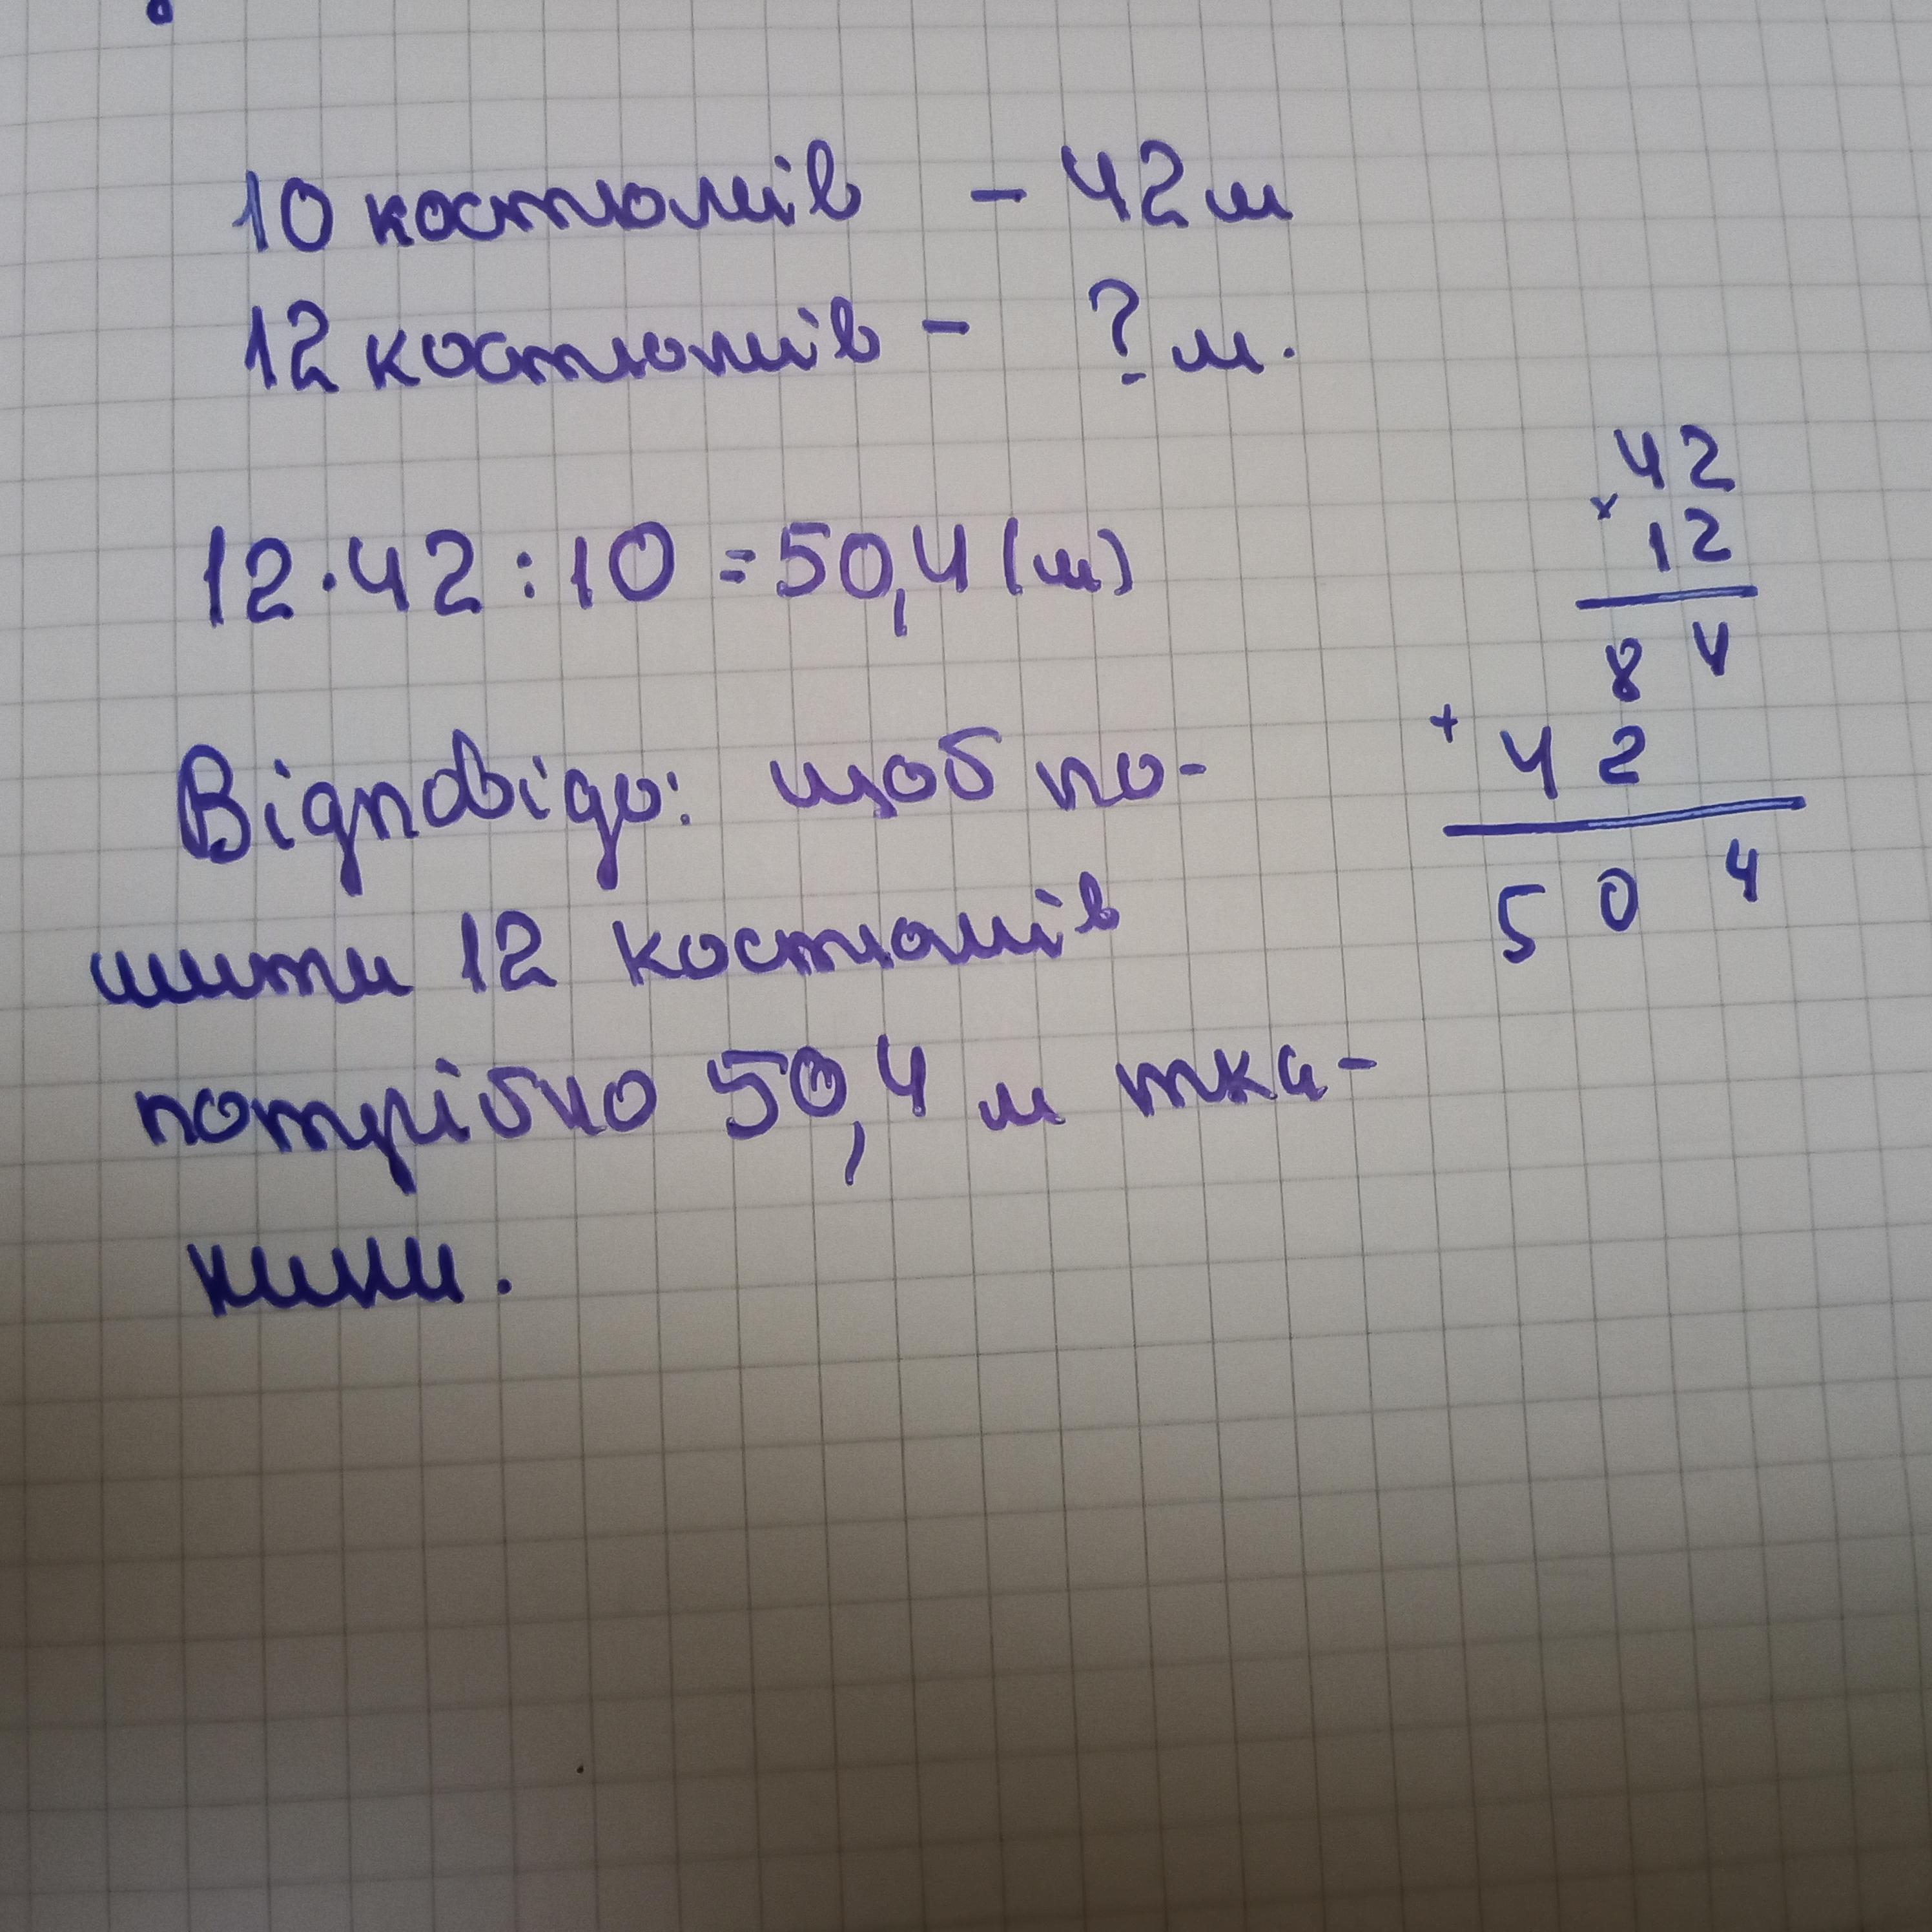 10 костюмів - 42 м
12 костюмів - ? м.
12·42:10=50,4(м)
Відповідь: щоб по-
шити 12 костюмів
потрібно 50,4 м тка-
нини.
42
×
12
8 4
+
4 2
5 0 4